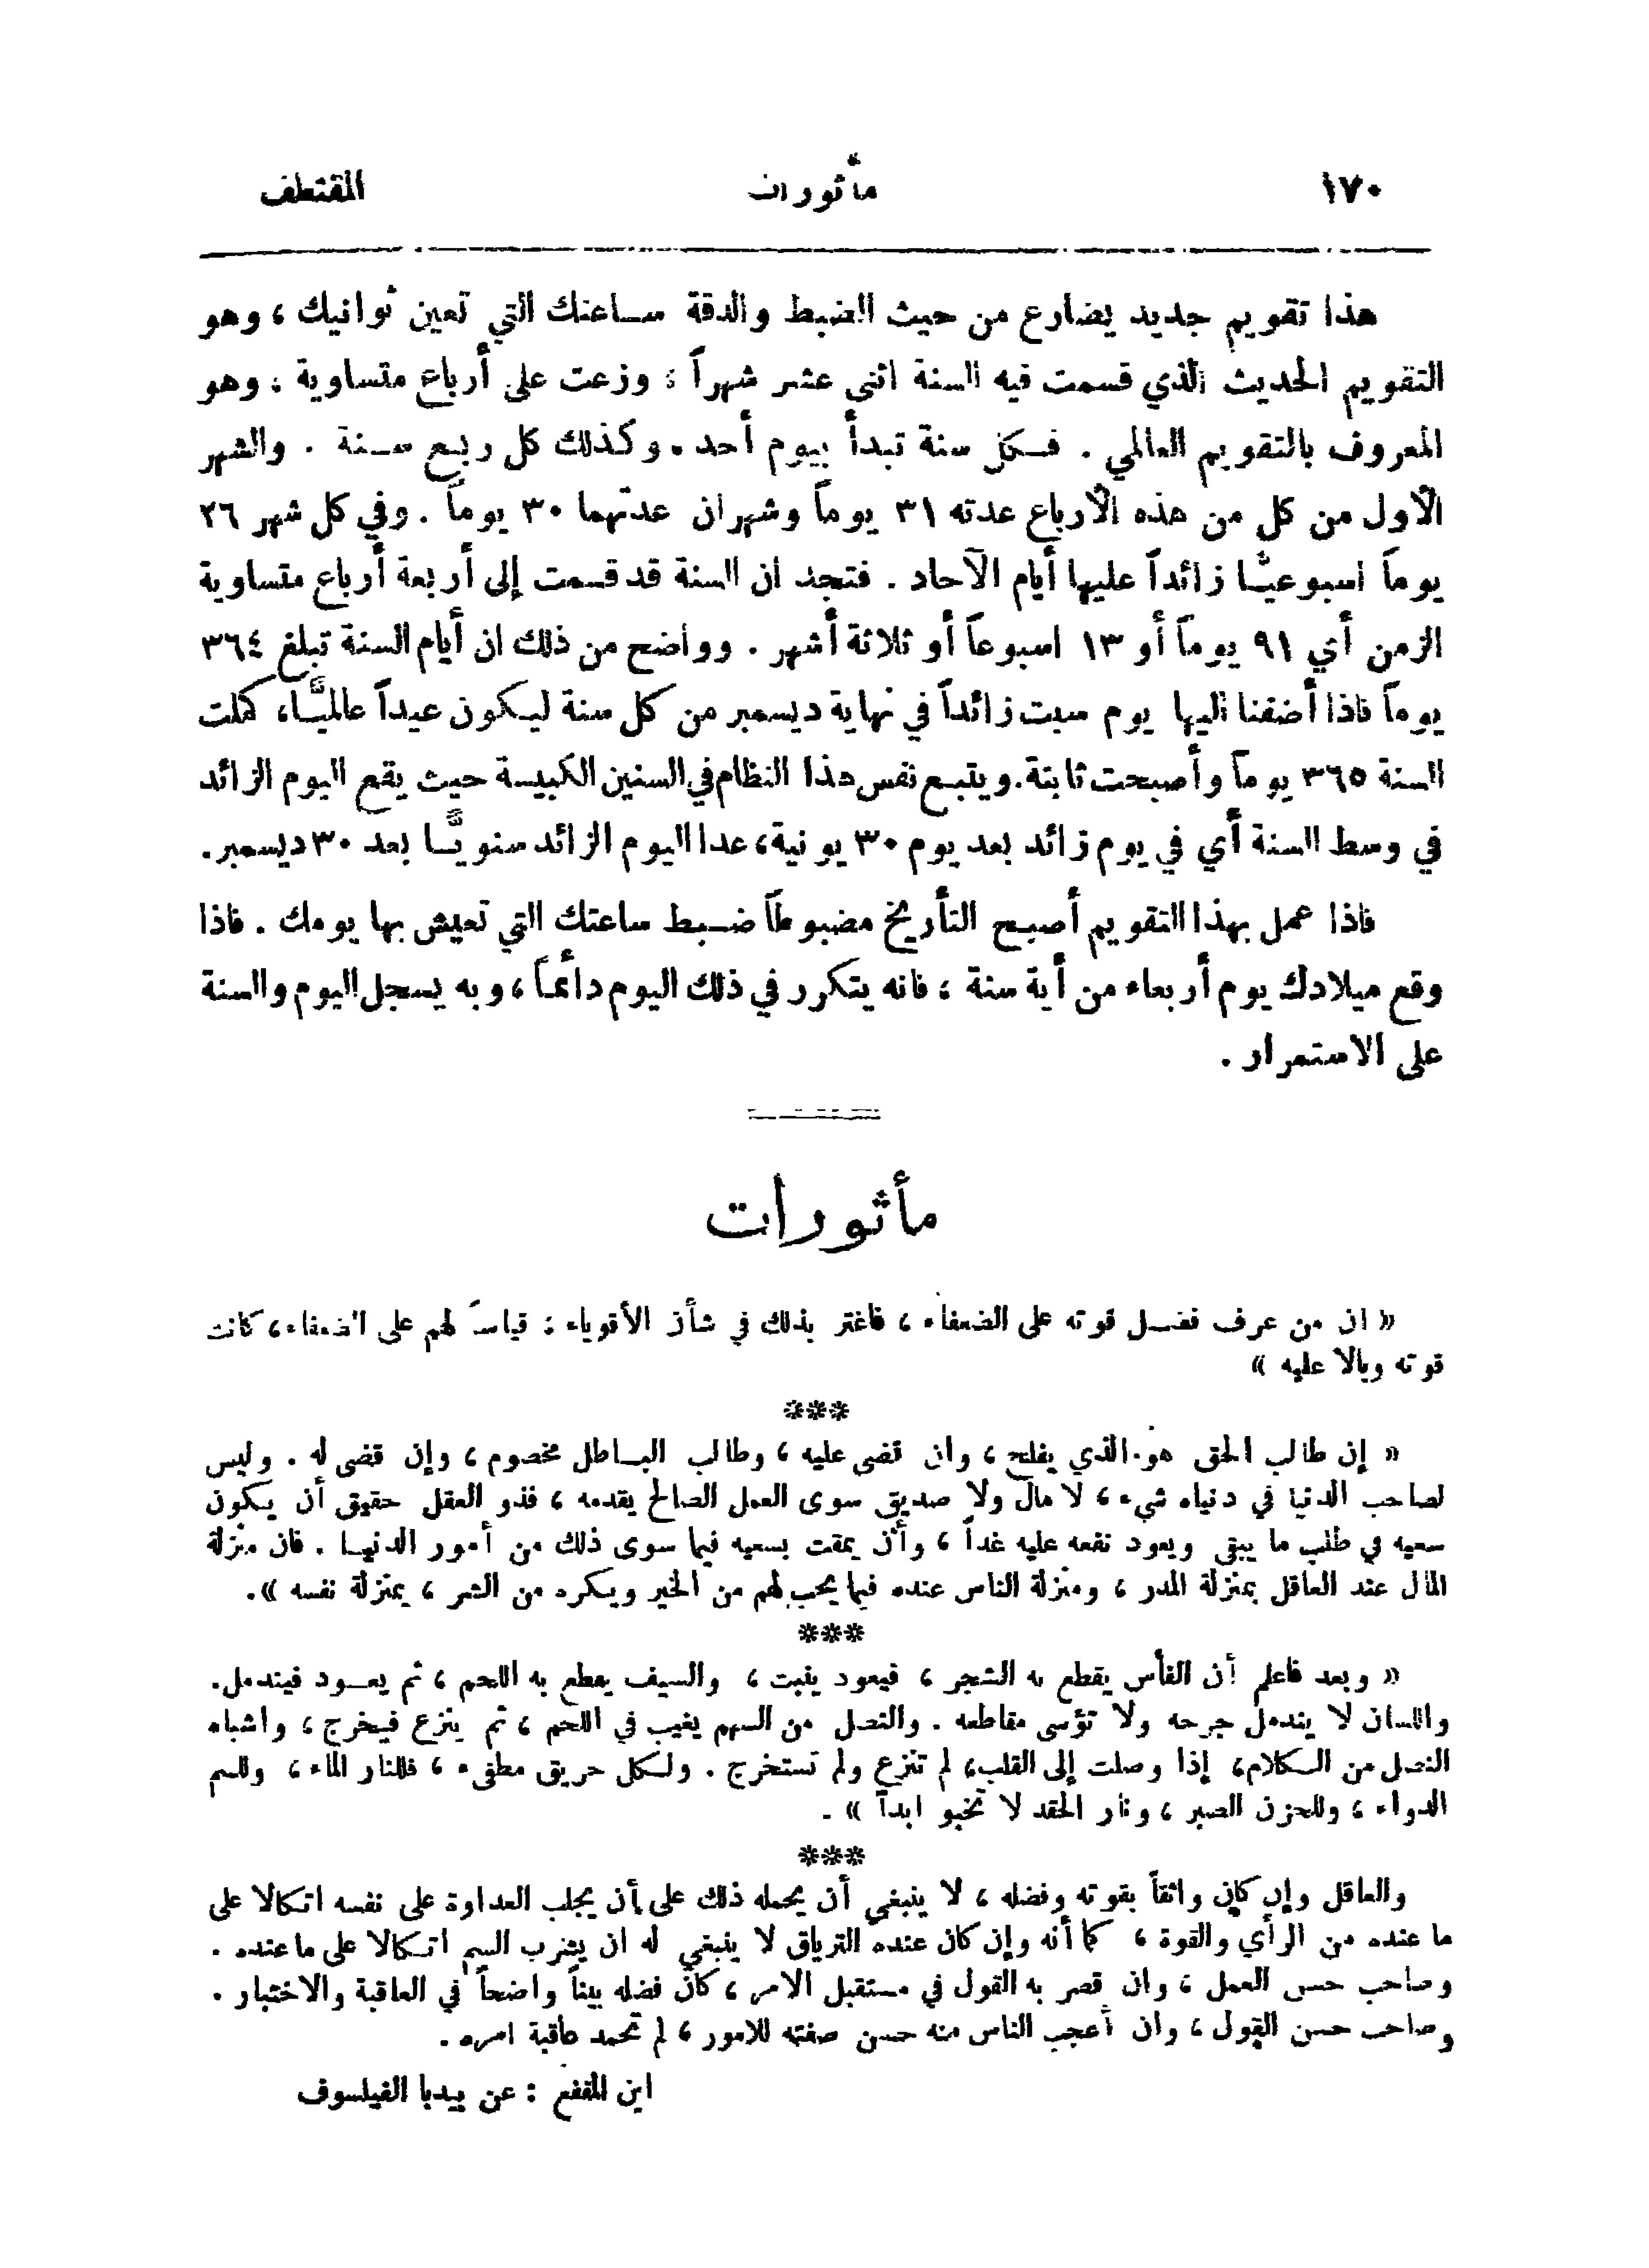 ١٧٠ مأثورات المقتطف
هذا تقويم جديد يضارع من حيث الضبط والدقة ساعتك التي تعين ثوانيك ، وهو
التقويم الحديث الذي قسمت فيه السنة اثنى عشر شهراً ، وزعت على أرباع متساوية ، وهو
المعروف بالتقويم العالمي . فكل سنة تبدأ بيوم أحد . وكذلك كل ربع سنة . والشهر
الأول من كل من هذه الأرباع عدته ٣١ يوماً وشهران عدتهما ٣٠ يوماً . وفي كل شهر ٢٦
يوماً اسبوعيًّا زائداً عليها أيام الآحاد . فتجد ان السنة قد قسمت إلى أربعة أرباع متساوية
الزمن أي ٩١ يوماً أو ١٣ اسبوعاً أو ثلاثة أشهر . وواضح من ذلك ان أيام السنة تبلغ ٣٦٤
يوماً فاذا أضفنا اليها يوم سبت زائداً في نهاية ديسمبر من كل سنة ليكون عيداً عالميًّا، كملت
السنة ٣٦٥ يوماً وأصبحت ثابتة. ويتبع نفس هذا النظام في السنين الكبيسة حيث يقع اليوم الزائد
في وسط السنة أي في يوم زائد بعد يوم ٣٠ يونية، عدا اليوم الزائد سنويًّا بعد ٣٠ ديسمبر.
فاذا عمل بهذا التقويم أصبح التأريخ مضبوطاً ضبط ساعتك التي تعيش بها يومك . فاذا
وقع ميلادك يوم أربعاء من أية سنة ، فانه يتكرر في ذلك اليوم دائماً ، وبه يسجل اليوم والسنة
على الاستمرار .
مأثورات
« ان من عرف فضل قوته على الضعفاء ، فاغتر بذلك في شأن الأقوياء ، قياساً لهم على الضعفاء، كانت
قوته وبالا عليه »
***
« إن طالب الحق هو الذي يفلح ، وان قضى عليه ، وطالب الباطل مخصوم ، وإن قضى له . وليس
لصاحب الدنيا في دنياه شيء ، لا مال ولا صديق سوى العمل الصالح يقدمه ، فذو العقل حقيق أن يكون
سعيه في طلب ما يبقى ويعود نفعه عليه غداً ، وأن يمقت بسعيه فيما سوى ذلك من أمور الدنيا . فان منزلة
المال عند العاقل بمنزلة المدر ، ومنزلة الناس عنده فيما يحب لهم من الخير ويكره من الشر ، بمنزلة نفسه ».
***
« وبعد فاعلم أن الفأس يقطع به الشجر ، فيعود ينبت ، والسيف يقطع به اللحم ، ثم يعود فيندمل.
واللسان لا يندمل جرحه ولا تؤسى مقاطعه . والنصل من السهم يغيب في اللحم ، ثم ينزع فيخرج ، واشباه
النصل من الكلام، إذا وصلت إلى القلب، لم تنزع ولم تستخرج . ولكل حريق مطفىء ، فللنار الماء ، وللسم
الدواء ، وللحزن الصبر ، ونار الحقد لا تخبو ابداً » .
***
والعاقل وإن كان واثقاً بقوته وفضله ، لا ينبغي أن يحمله ذلك على أن يجلب العداوة على نفسه اتكالا على
ما عنده من الرأي والقوة ، كما أنه وإن كان عنده الترياق لا ينبغي له ان يشرب السم اتكالا على ما عنده .
وصاحب حسن العمل ، وان قصر به القول في مستقبل الامر ، كان فضله بيناً واضحاً في العاقبة والاختبار .
وصاحب حسن القول ، وان أعجب الناس منه حسن صفته للامور ، لم تحمد عاقبة امره .
ابن المقفع : عن بيدبا الفيلسوف